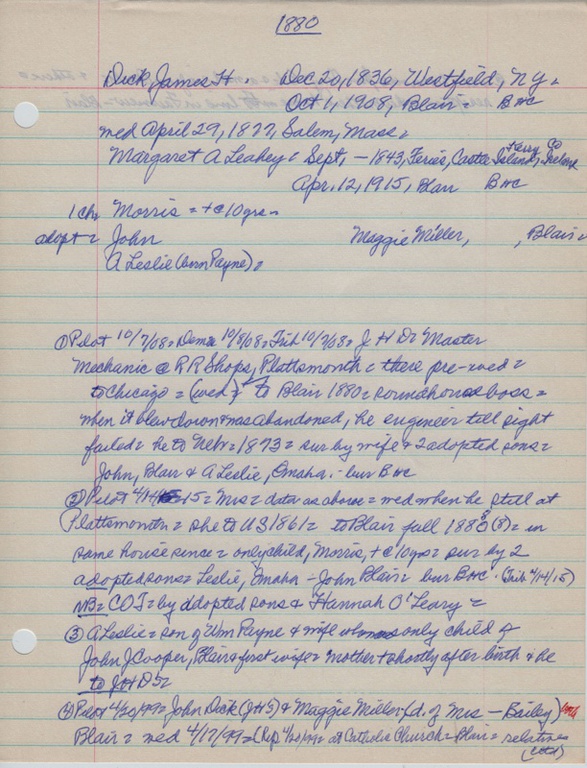 1880
Dick, James H. Dec 20, 1836, Westfield, N.Y.
Oct 1, 1908, Blair = BHC
wed April 29, 1877, Salem, Mass =
Kerry Co
Margaret A Leahey = Sept, – 1843, Castle Island, Ireland
Apr. 12, 1915, Blair BHC
1 ch = Morris = + c 10 yrs =
adopt = John Maggie Miller, , Blair =
A Leslie (born Payne) =
① Pilot 10/7/08 = Demo 10/8/08 = Trib 10/7/08 = J H D = Master
Mechanic @ RR Shops, Plattsmonth = there pre-wed =
to Chicago = (wed) = to Blair 1880 = roundhouse boss =
when it blew down & was abandoned, he engineer till sight
failed = he to Nebr = 1873 = sur by wife & 2 adopted sons =
John, Blair & A Leslie, Omaha - bur BHC
② Pilot 4/14 15 = Mrs = data as above = wed when he still at
Plattsmonth = she to US 1861 = to Blair fall 1880 (8) = in
same house since = only child, Morris, + c 10 yrs = sur by 2
adopted sons = Leslie, Omaha - John Blair = bur BHC. (Trib 4/14/15)
NB = COT = by adopted sons & Hannah O'Leary =
③ A Leslie = son of Wm Payne & wife who was only child of
John J Cooper, Blair & first wife = mother + shortly after birth & he
to JHDs =
④ Pilot 4/20/99 = John Dick (JHS) & Maggie Miller (d. of Mrs – Bailey)
Blair = wed 4/17/99 = (Rep 4/20/99 = at Catholic Church = Blair = relatives